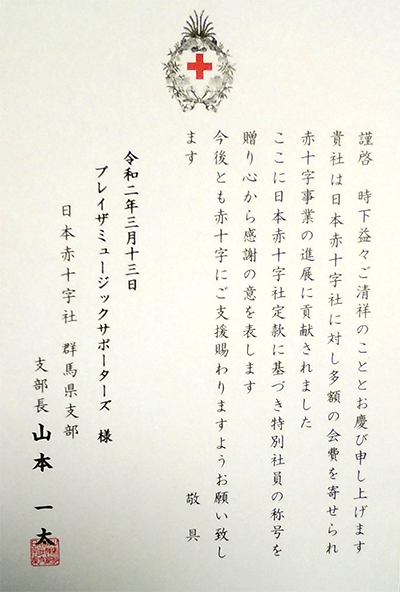 謹啓　時下益々ご清祥のこととお慶び申し上げます
貴社は日本赤十字社に対し多額の会費を寄せられ
赤十字事業の進展に貢献されました
ここに日本赤十字社定款に基づき特別社員の称号を
贈り心から感謝の意を表します
今後とも赤十字にご支援賜わりますようお願い致し
ます　敬具
令和二年三月十三日
プレイザミュージックサポーターズ　様
日本赤十字社　群馬県支部
支部長　山本　一太